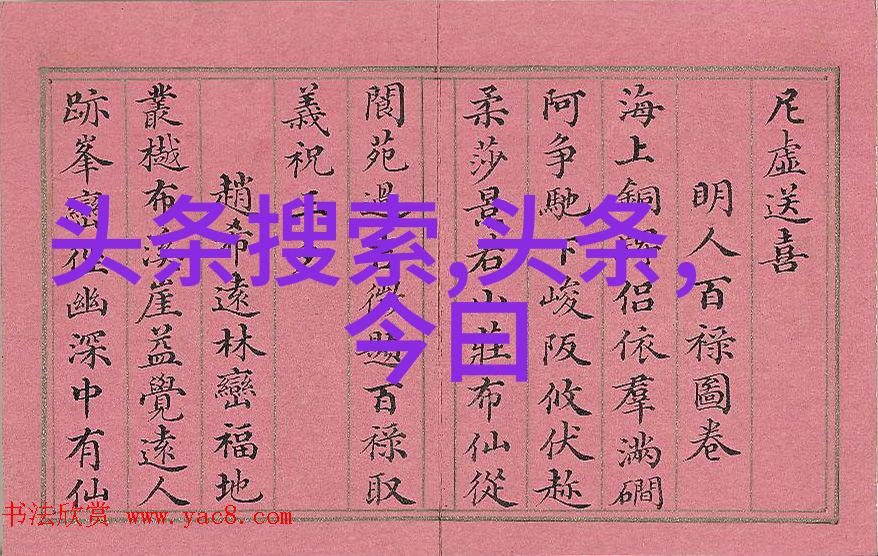 虛送喜
明人百祿圖卷
海上銅侶依羣滿磵
阿爭馳下峻阪攸伏
柔莎景山莊布仙從
閬苑過題百祿取
義祝
趙希遠林巒福地
叢樾布崖益覺遠人
跡峯巒幽深中有仙
头条搜索,头条,
今日
书法欣赏 www.yac8.com